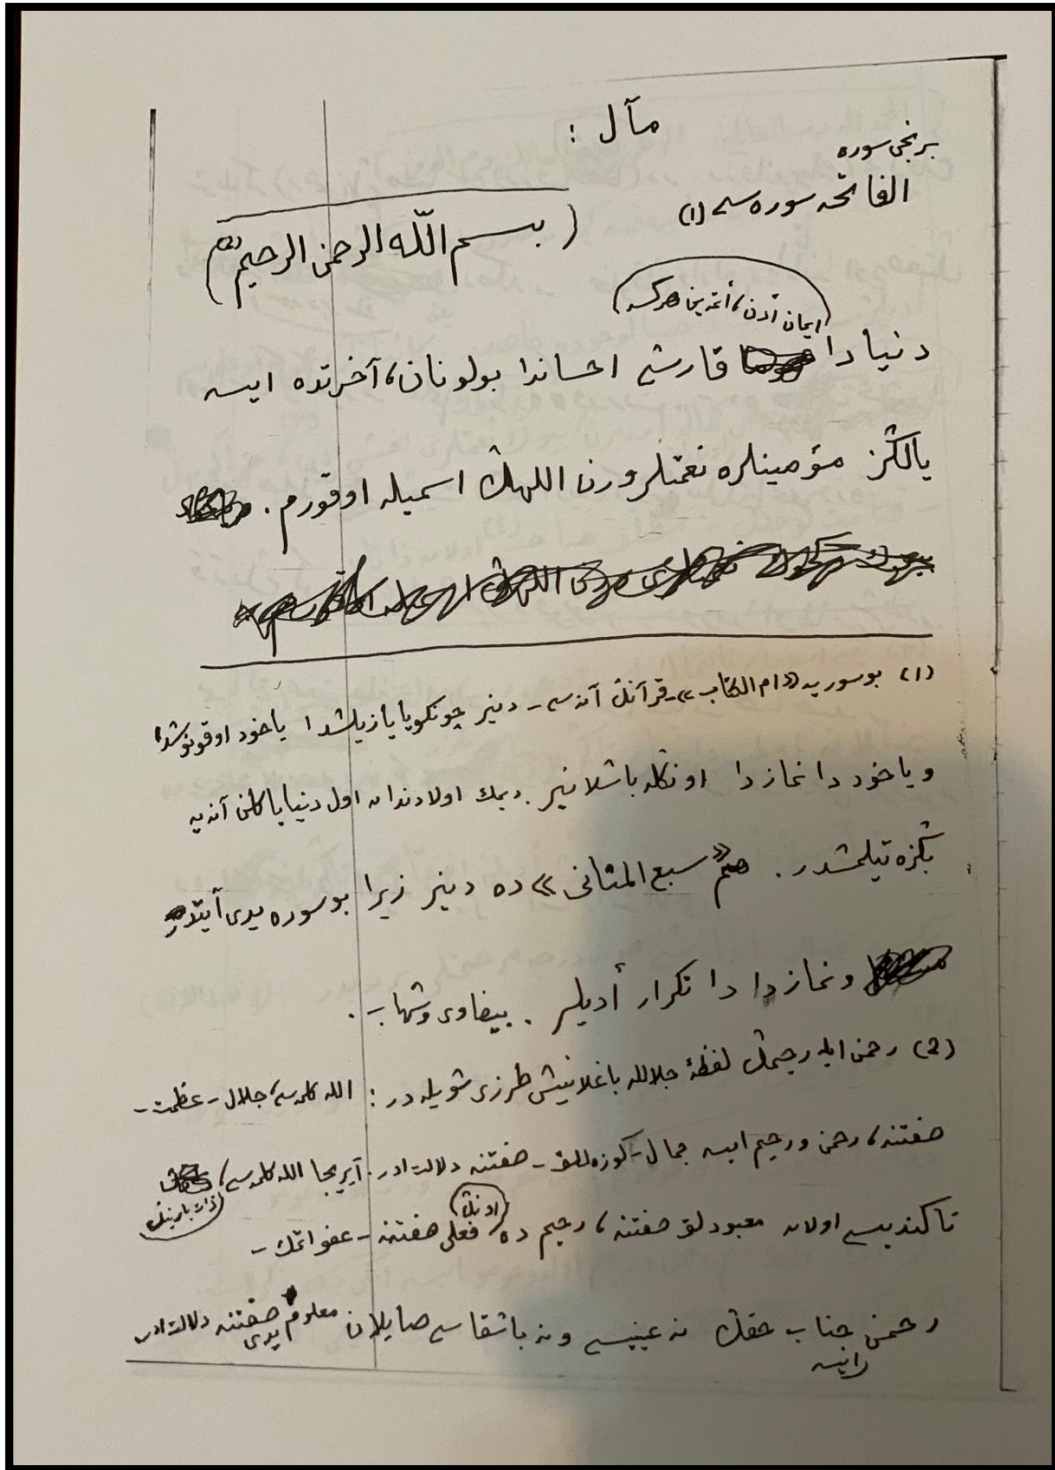 مآل :
برنجى سوره
الفاتحه سوره سى (١)
( بسم اللّه الرحمن الرحيم (2) )
ايمان أدن، أتمدين هركسه
دنيا دا قارشى احساندا بولونان، آخرتده ايسه
يالڭز مؤمينلره نعمتلر ورن اللهڭ اسميله اوقورم .
(١) بو سوريه «ام الكتاب» - قرآنڭ آنه سى - دنير چونكو يا يازيلشدا ياخود اوقونوشدا،
و ياخود دا نمازدا اونكله باشلانير . ديمك اولادندان اول دنيايا كلن آنه يه
بڭزه تيلمشدر . هم «سبع المثانى» ده دينير زيرا بو سوره يدى آيتدر
و نمازدا دا تكرار أديلير . بيضاوى و شهاب .
(2) رحمن ايله رحيمڭ لفظهٔ جلالله باغلانيش طرزى شويله در : الله كلمه سى، جلال - عظمت -
صفتنه، رحمن و رحيم ايسه جمال - كوزه للق - صفتنه دلالت ادر . آيريجا الله كلمه سى،
ذات بارينڭ
تا كنديسى اولان معبودلق صفتنه، رحيم ده اونڭ فعلى صفتنه - عفو اتمك -
رحمن ايسه جناب حقڭ نه عينيسى و نه باشقاسى صايلان معلوم يدى صفتنه دلالت ادر